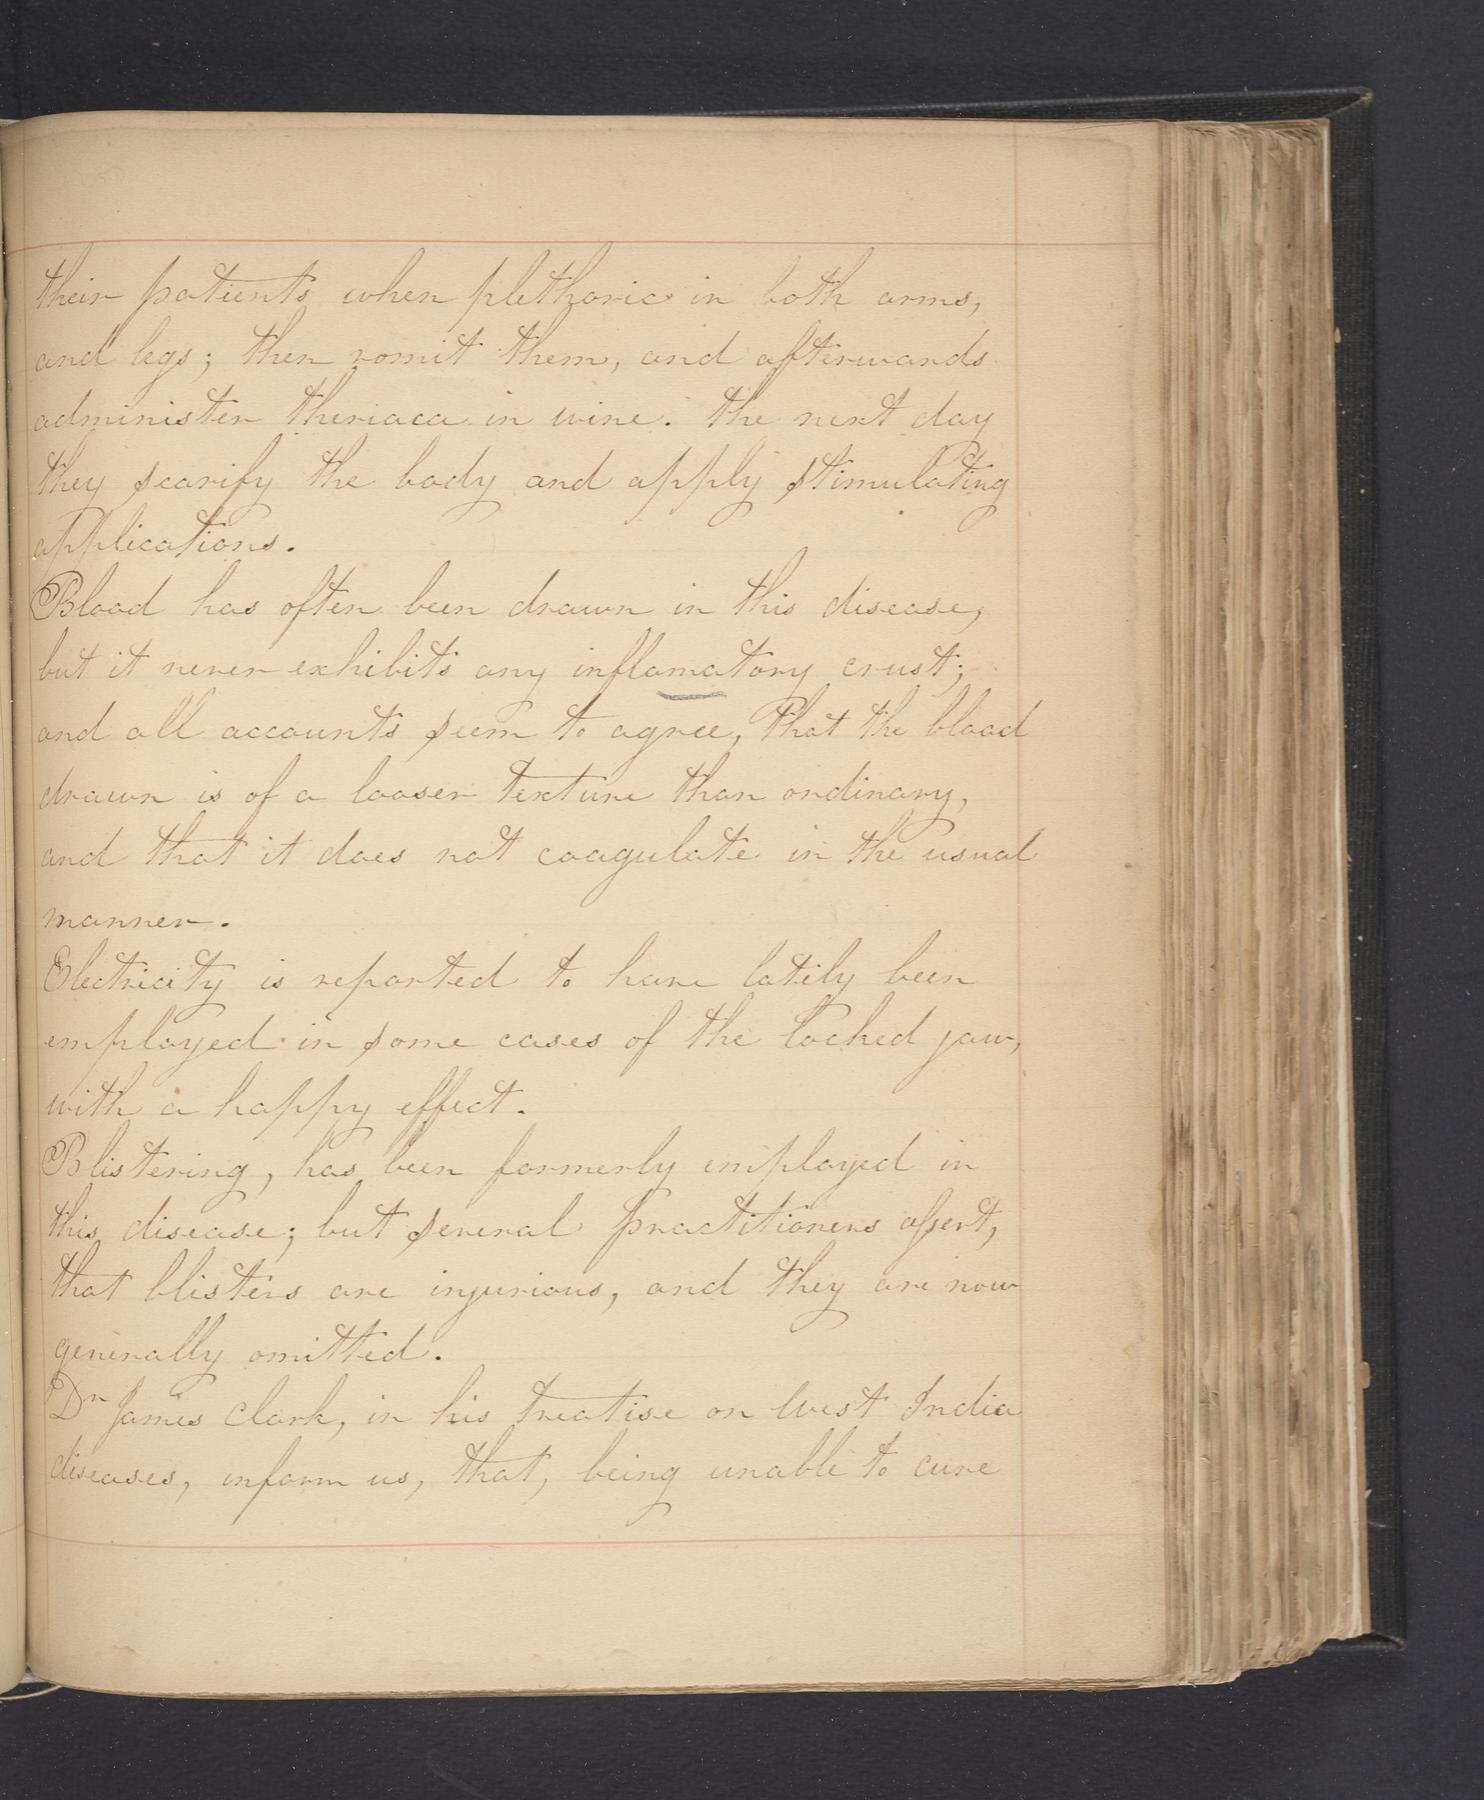 their patients when plethoric in both arms,
and legs; then vomit them, and afterwards
administer theriaca in wine. The next day
they scarify the body and apply stimulating
applications.
Blood has often been drawn in this disease,
but it never exhibits any inflamatory crust;
and all accounts seem to agree, that the blood
drawn is of a looser texture than ordinary,
and that it does not coagulate in the usual
manner.
Electricity is reported to have latily been
employed in some cases of the locked jaw,
with a happy effect.
Blistering, has been formerly employed in
this disease; but several practitioners assert,
that blisters are injurious, and they are now
generally omitted.
Dr James Clark, in his treatise on West India
diseases, inform us, that, being unable to cure